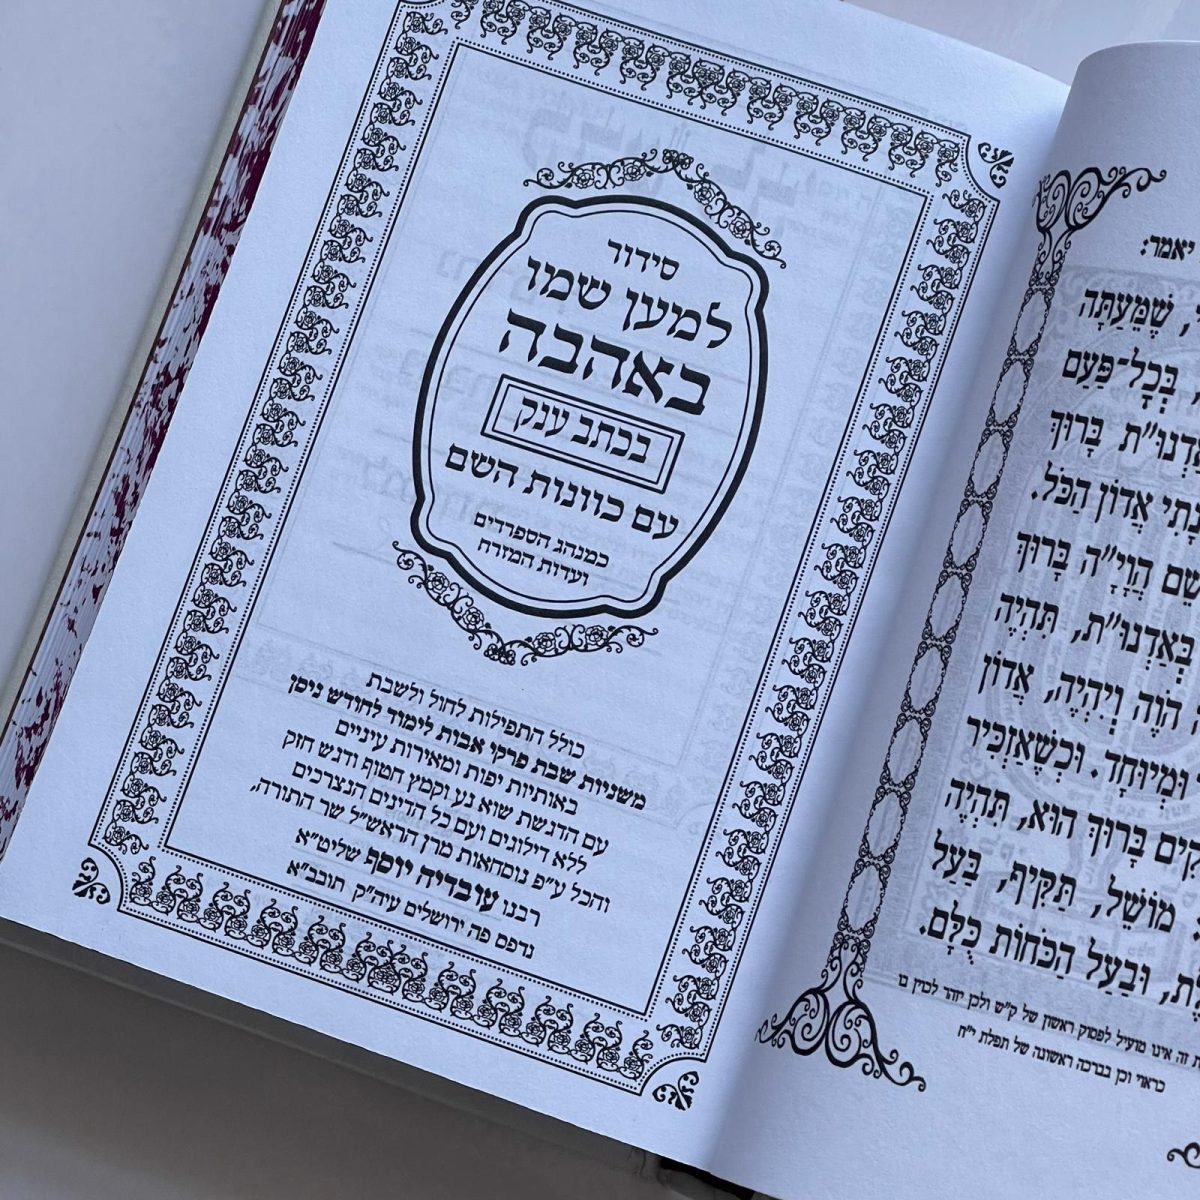 סידור
למען שמו
באהבה
בכתב ענק
עם כוונות השם
כמנהג הספרדים
ועדות המזרח
כולל התפילות לחול ולשבת
משניות שבת פרקי אבות לימוד לחודש ניסן
באותיות יפות ומאירות עינים
עם הדגשת שוא נע וקמץ חטוף ודגש חזק
ללא דילוגים ועם כל הדינים הנצרכים
והכל ע"פ נוסחאות מרן הראש"ל שר התורה,
רבנו עובדיה יוסף שליט"א
נדפס פה ירושלים עיה"ק תובב"א
יאמר:
שֶׁמֵּעַתָּה
בְּכָל־פַּעַם
בָּרוּךְ
אֲדוֹן הַכֹּל.
הֲוָיָ"ה בָּרוּךְ
בְּאַדְנוּ"ת, תִּהְיֶה
הֹוֶה וְיִהְיֶה, אֲדוֹן
וּמְיוּחָד. וּכְשֶׁאַזְכִּיר
בָּרוּךְ הוּא, תִּהְיֶה
מוֹשֵׁל, תַּקִּיף, בַּעַל
וּבַעַל הַכֹּחוֹת כֻּלָּם.
זה אינו מועיל לפסוק ראשון של ק"ש ולכן יזהר לכוין
כראוי וכן בברכה ראשונה של תפלת י"ח